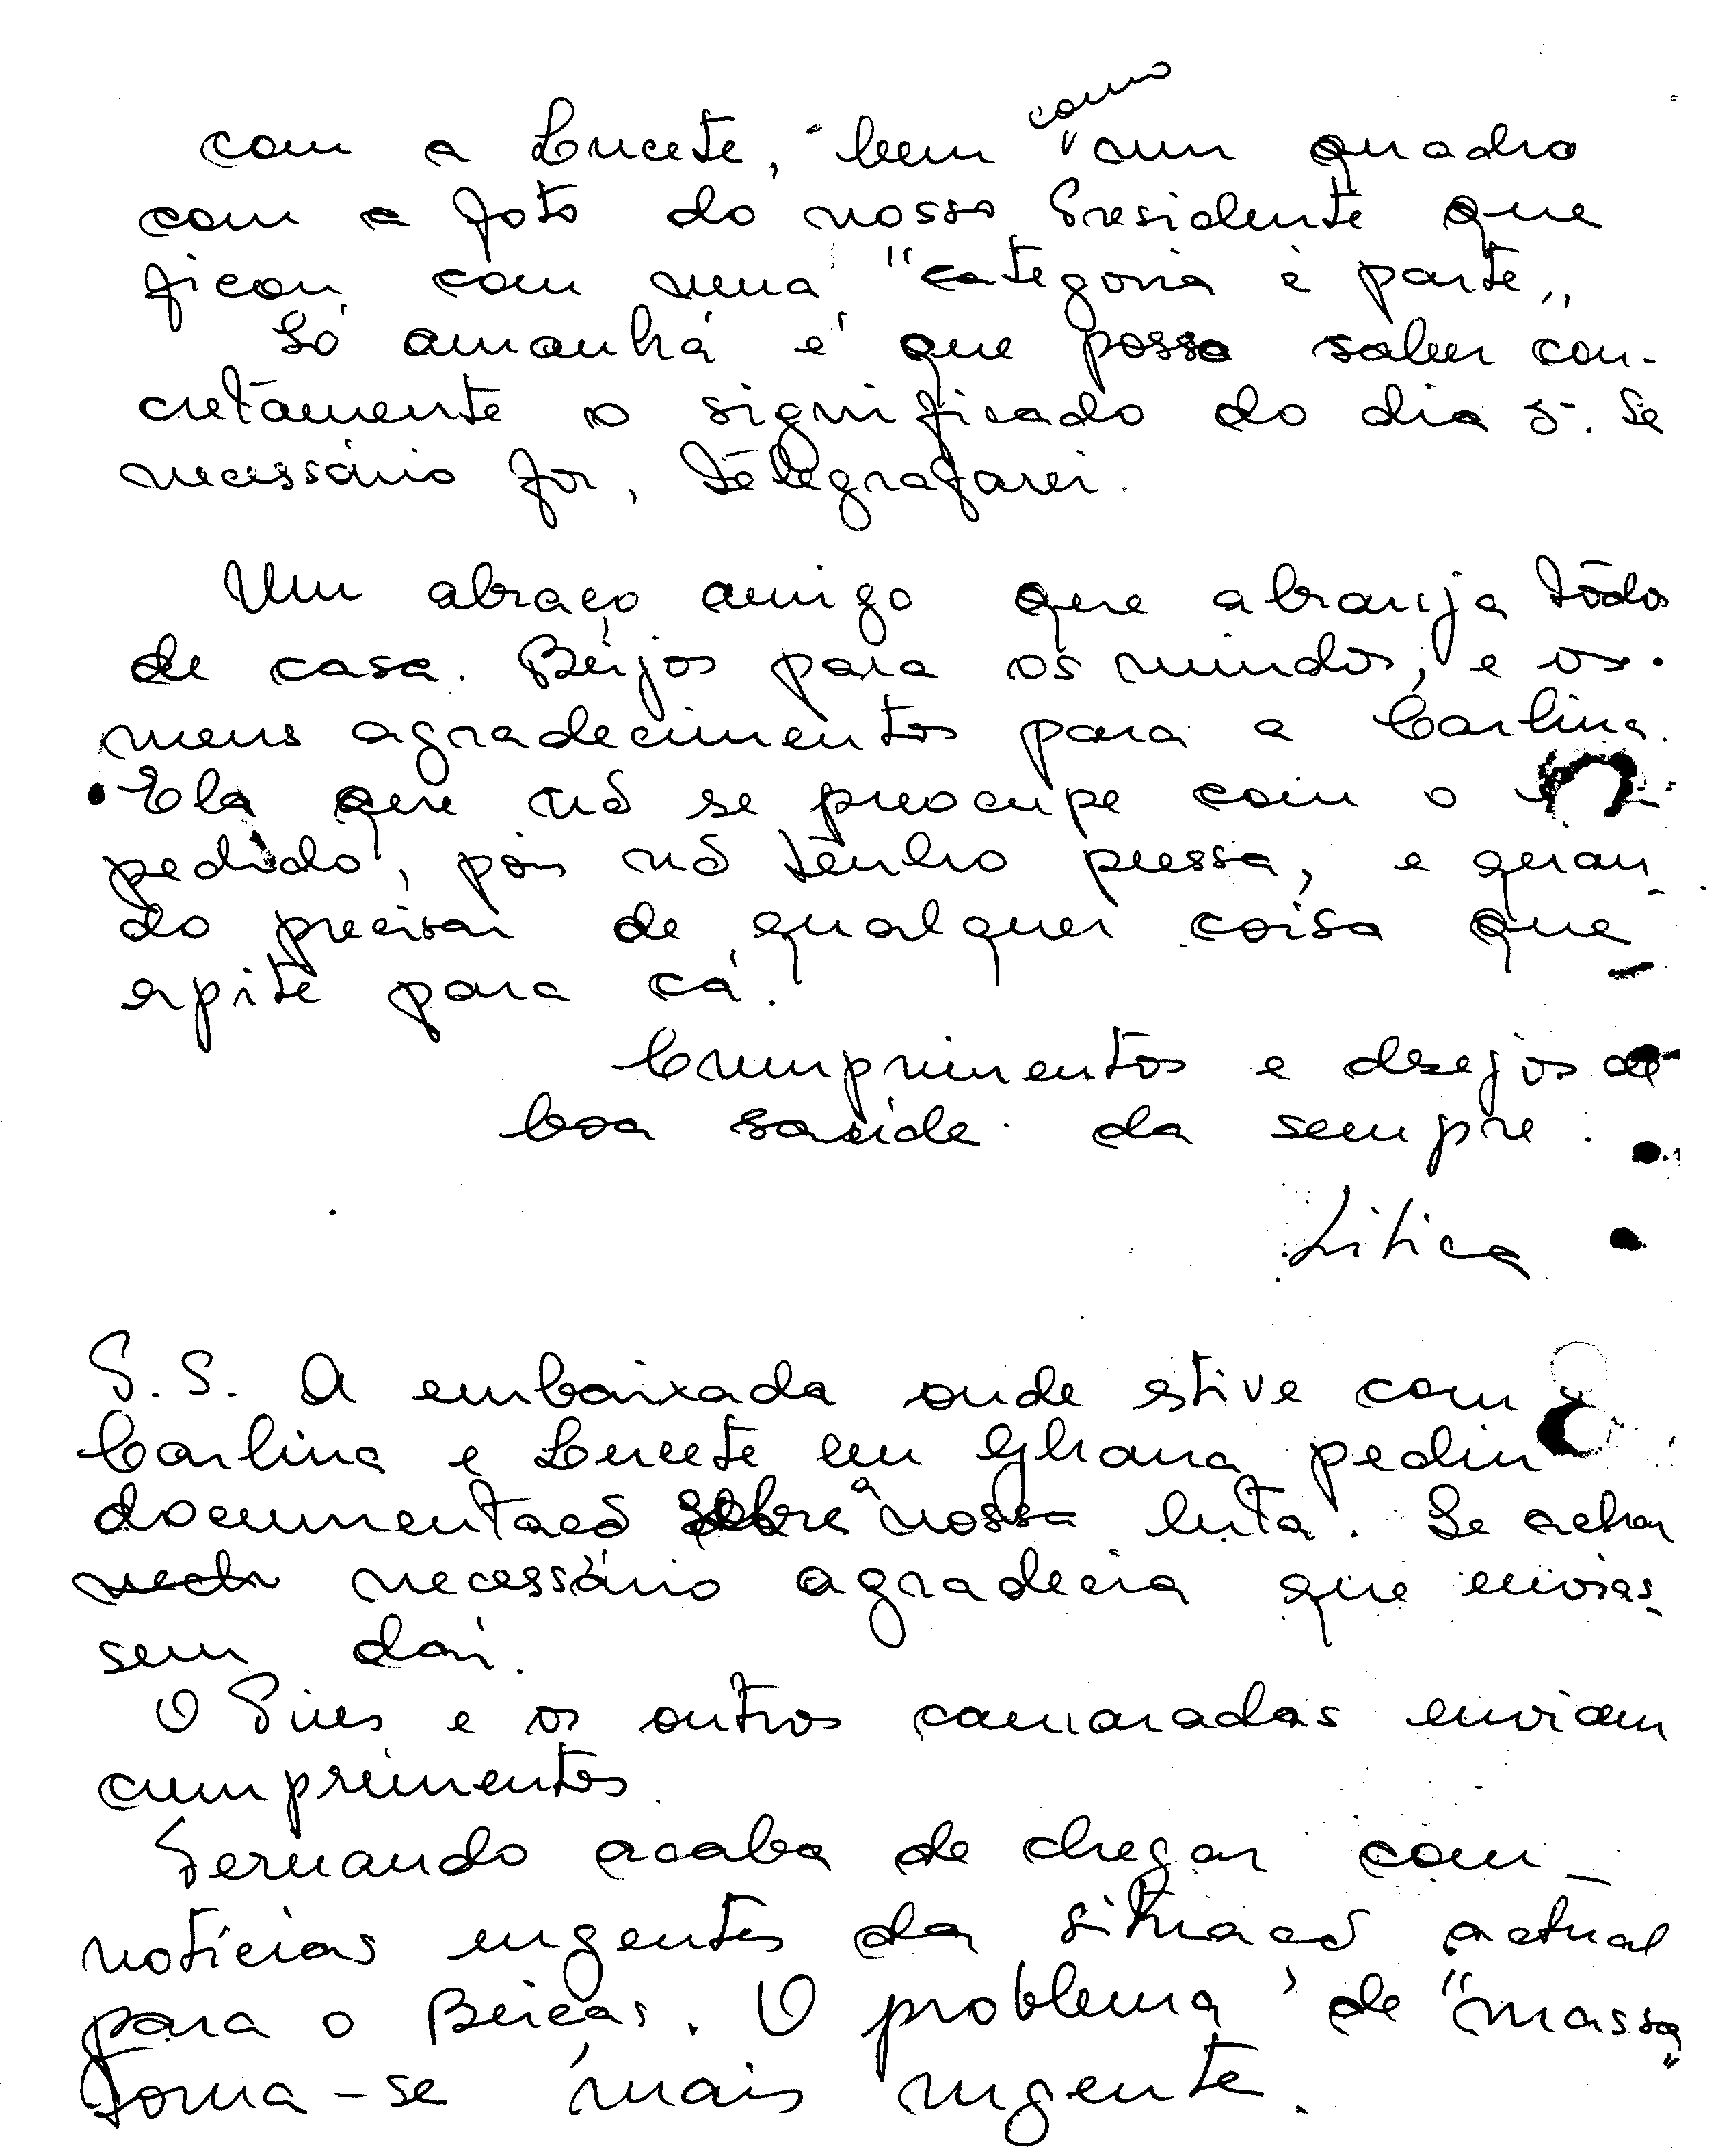 com a Lucete, bem como um quadro
com a foto do nosso Presidente que
ficou com uma "categoria à parte"
Só amanhã é que posso saber con-
cretamente o significado do dia 5. Se
necessário for, telegrafarei.
Um abraço amigo que abranja todos
de casa. Beijos para os miudos, e os
meus agradecimentos para a Carlina.
Ela que nõ se preocupe com o
pedido, pois nõ tenho pressa, e quan
do precisar de qualquer coisa que
apite para cá.
Cumprimentos e desejos de
boa saúde da sempre
Litica
P.S. A embaixada onde estive com
Carlina e Lucete em Ghana pediu
documentacõ sobre a nossa luta. Se achar
necessário agradecia que envias-
sem daí.
O Pires e os outros camaradas enviam
cumprimentos.
Fernando acaba de chegar com
notícias urgentes da situacõ actual
para o Beiças. O problema de "massa"
torna-se mais urgente.